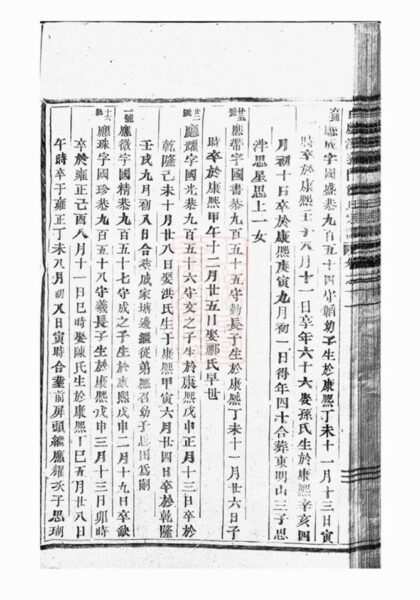 應成字國盛巷九百五十四守韜幼子生於康熙丁未十一月十三日寅
時卒於　　壬子八月十一日享年六十六娶孫氏生於康熙辛亥四
月初十日卒於康熙庚寅九月初一日得年四十合葬東明山三子思
泮思星思上一女
應帶字國書巷九百五十五守勳長子生於康熙丁未十一月廿六日子
時卒於康熙甲午十二月廿五日娶酈氏早世
應耀字國光巷九百五十六守文之子生於康熙戊申正月十三日卒於
乾隆己未十月廿八日娶洪氏生于康熙甲寅六月廿四日卒於乾隆
壬戌九月初八日合葬戚家塘邊繼從弟熙召幼子思因為嗣
應徵字國精巷九百五十七守成之子生於康熙戊申二月十九日卒缺
應珠字國珍巷九百五十八守義長子生於康熙戊申三月十三日卯時
卒於雍正己酉八月十一日巳時娶陳氏生於康熙丁巳五月廿八日
午時卒于雍正丁未八月初八日寅時合葬前屏頭繼應耀次子思瑚